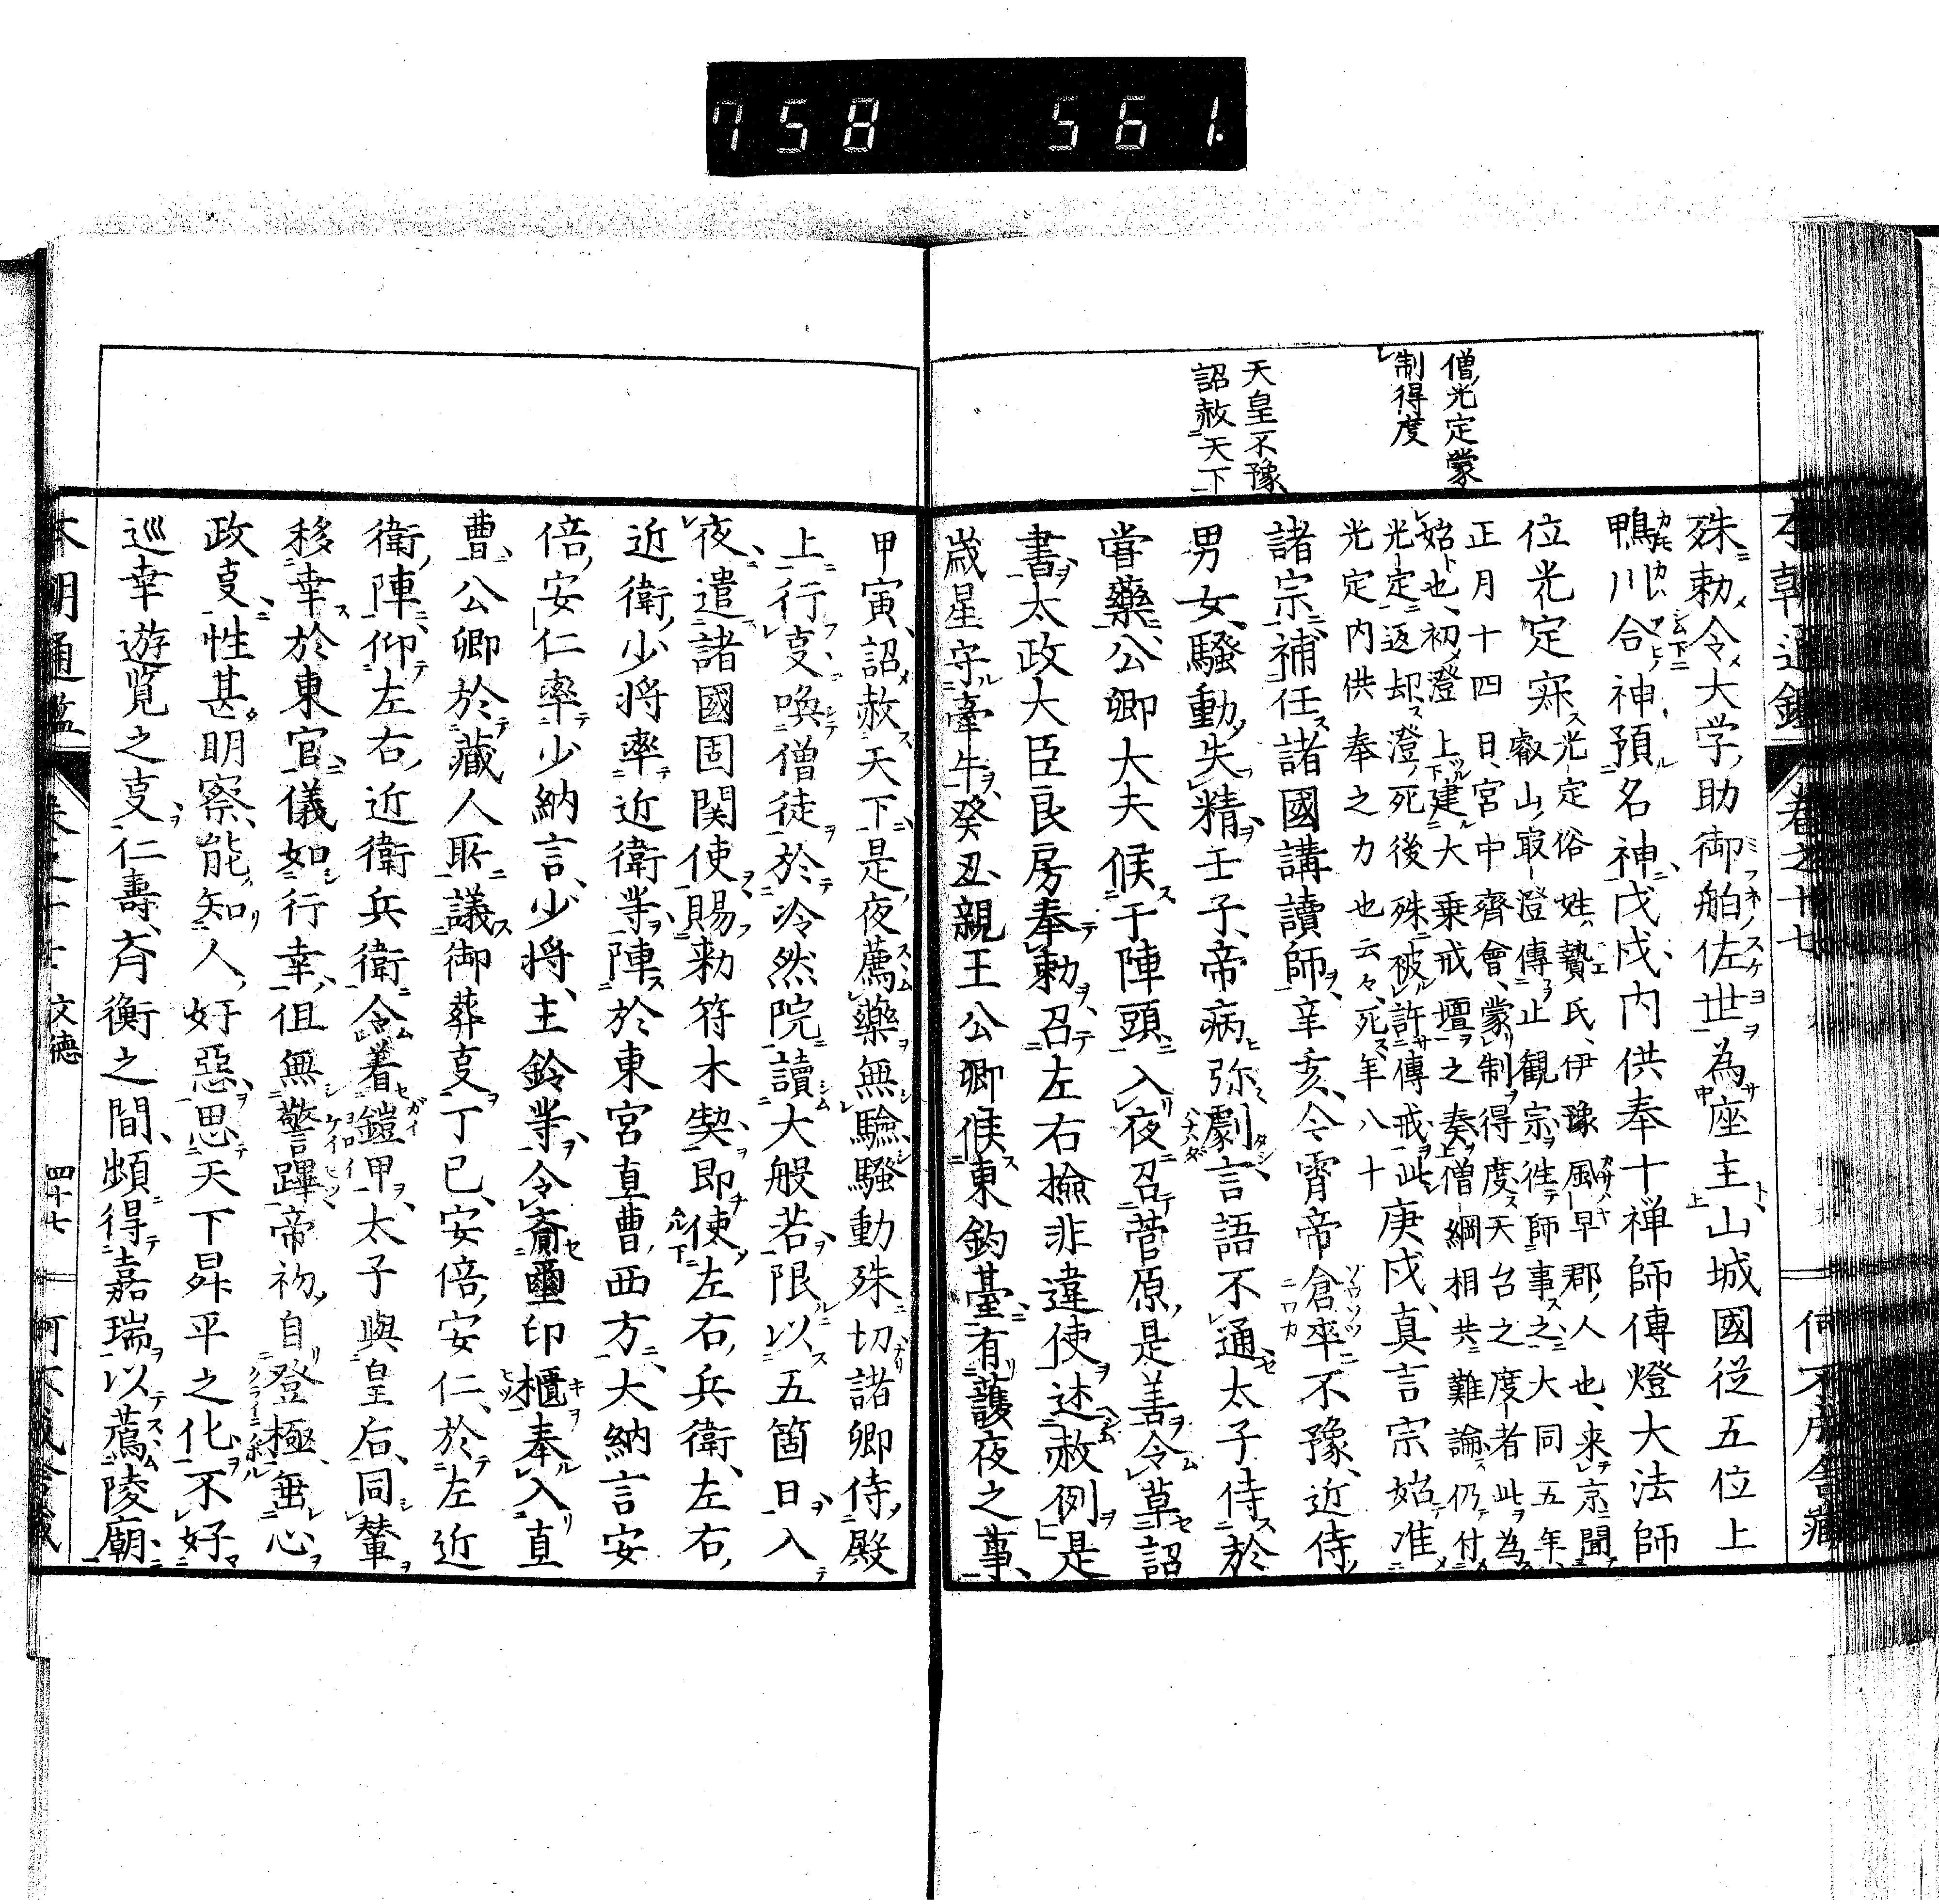 758 561.
本朝通鑑 卷之十七 何不成舎藏
僧光定蒙
制得度
天皇不豫
詔赦天下
殊勅令大学助御舶佐世為座主山城國従五位上
鴨川合神預名神戊戌内供奉十禅師傳燈大法師
位光定寂光定俗姓贄氏伊豫風早郡人也来京聞
叡山最澄傳止観宗徃師事之大同五年
正月十四日宮中齊會蒙制得度天台之度者此為
始也初澄上建大乗戒壇之奏僧綱相共難論仍付
光定返却澄死後殊被許傳戒此
光定内供奉之力也云々死年八十
庚戌真言宗始准
諸宗補任諸國講讀師辛亥今霄帝倉卒不豫近侍
男女騒動失精壬子帝病弥劇言語不通太子侍於
甞藥公卿大夫候于陣頭入夜召菅原是善令草詔
書太政大臣良房奉勅召左右撿非違使述赦例是
歳星守牽牛癸丑親王公卿候東釣臺有護夜之事
甲寅詔赦天下是夜薦藥無驗騒動殊切諸卿侍殿
上行叓喚僧徒於冷然院讀大般若限以五箇日入
夜遣諸國固関使賜勅符木契即使左右兵衛左右
近衛少将率近衛䓁陣於東宮直曹西方大納言安
倍安仁率少納言少将主鈴䓁令齎璽印櫃奉入直
曹公卿於藏人所議御葬叓丁巳安倍安仁於左近
衛陣仰左右近衛兵衛令着鎧甲太子與皇后同輦
移幸於東宮儀如行幸但無警蹕帝初自登極垂心
政叓性甚明察能知人好惡思天下昇平之化不好
巡幸遊覧之叓仁壽斉衡之間頻得嘉瑞以薦陵廟
本朝通鑑 卷之十七 文德 四十七 何不成舎藏